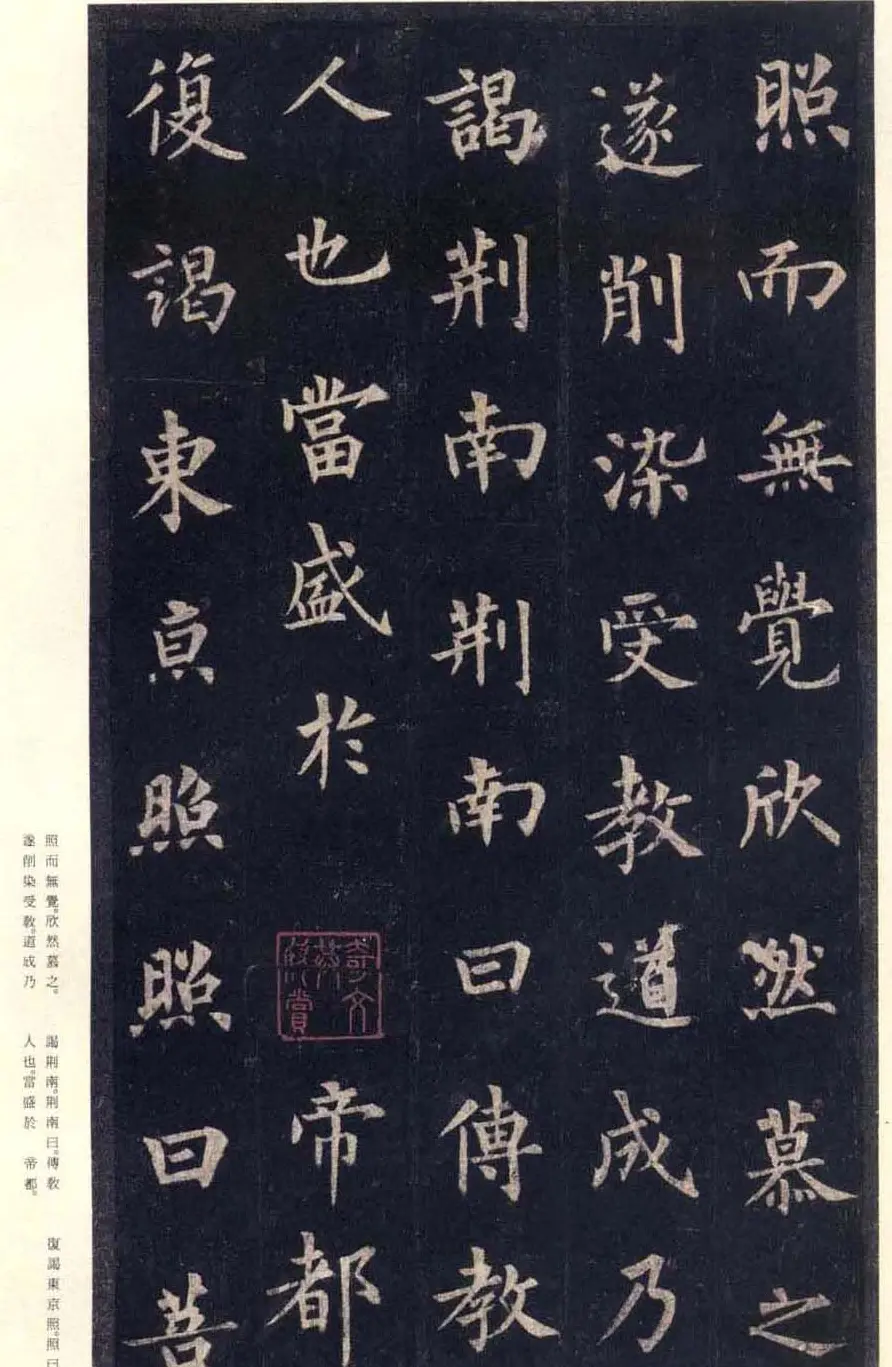 照而無覺欣然慕之
遂削染受教道成乃
謁荆南荆南曰傳教
人也當盛於 帝都
復謁東亰照照曰菩
照而無覺。欣然慕之。
遂削染受教。道成乃
謁荆南。荆南曰。傳教
人也。當盛於 帝都。
復謁東京照。照曰